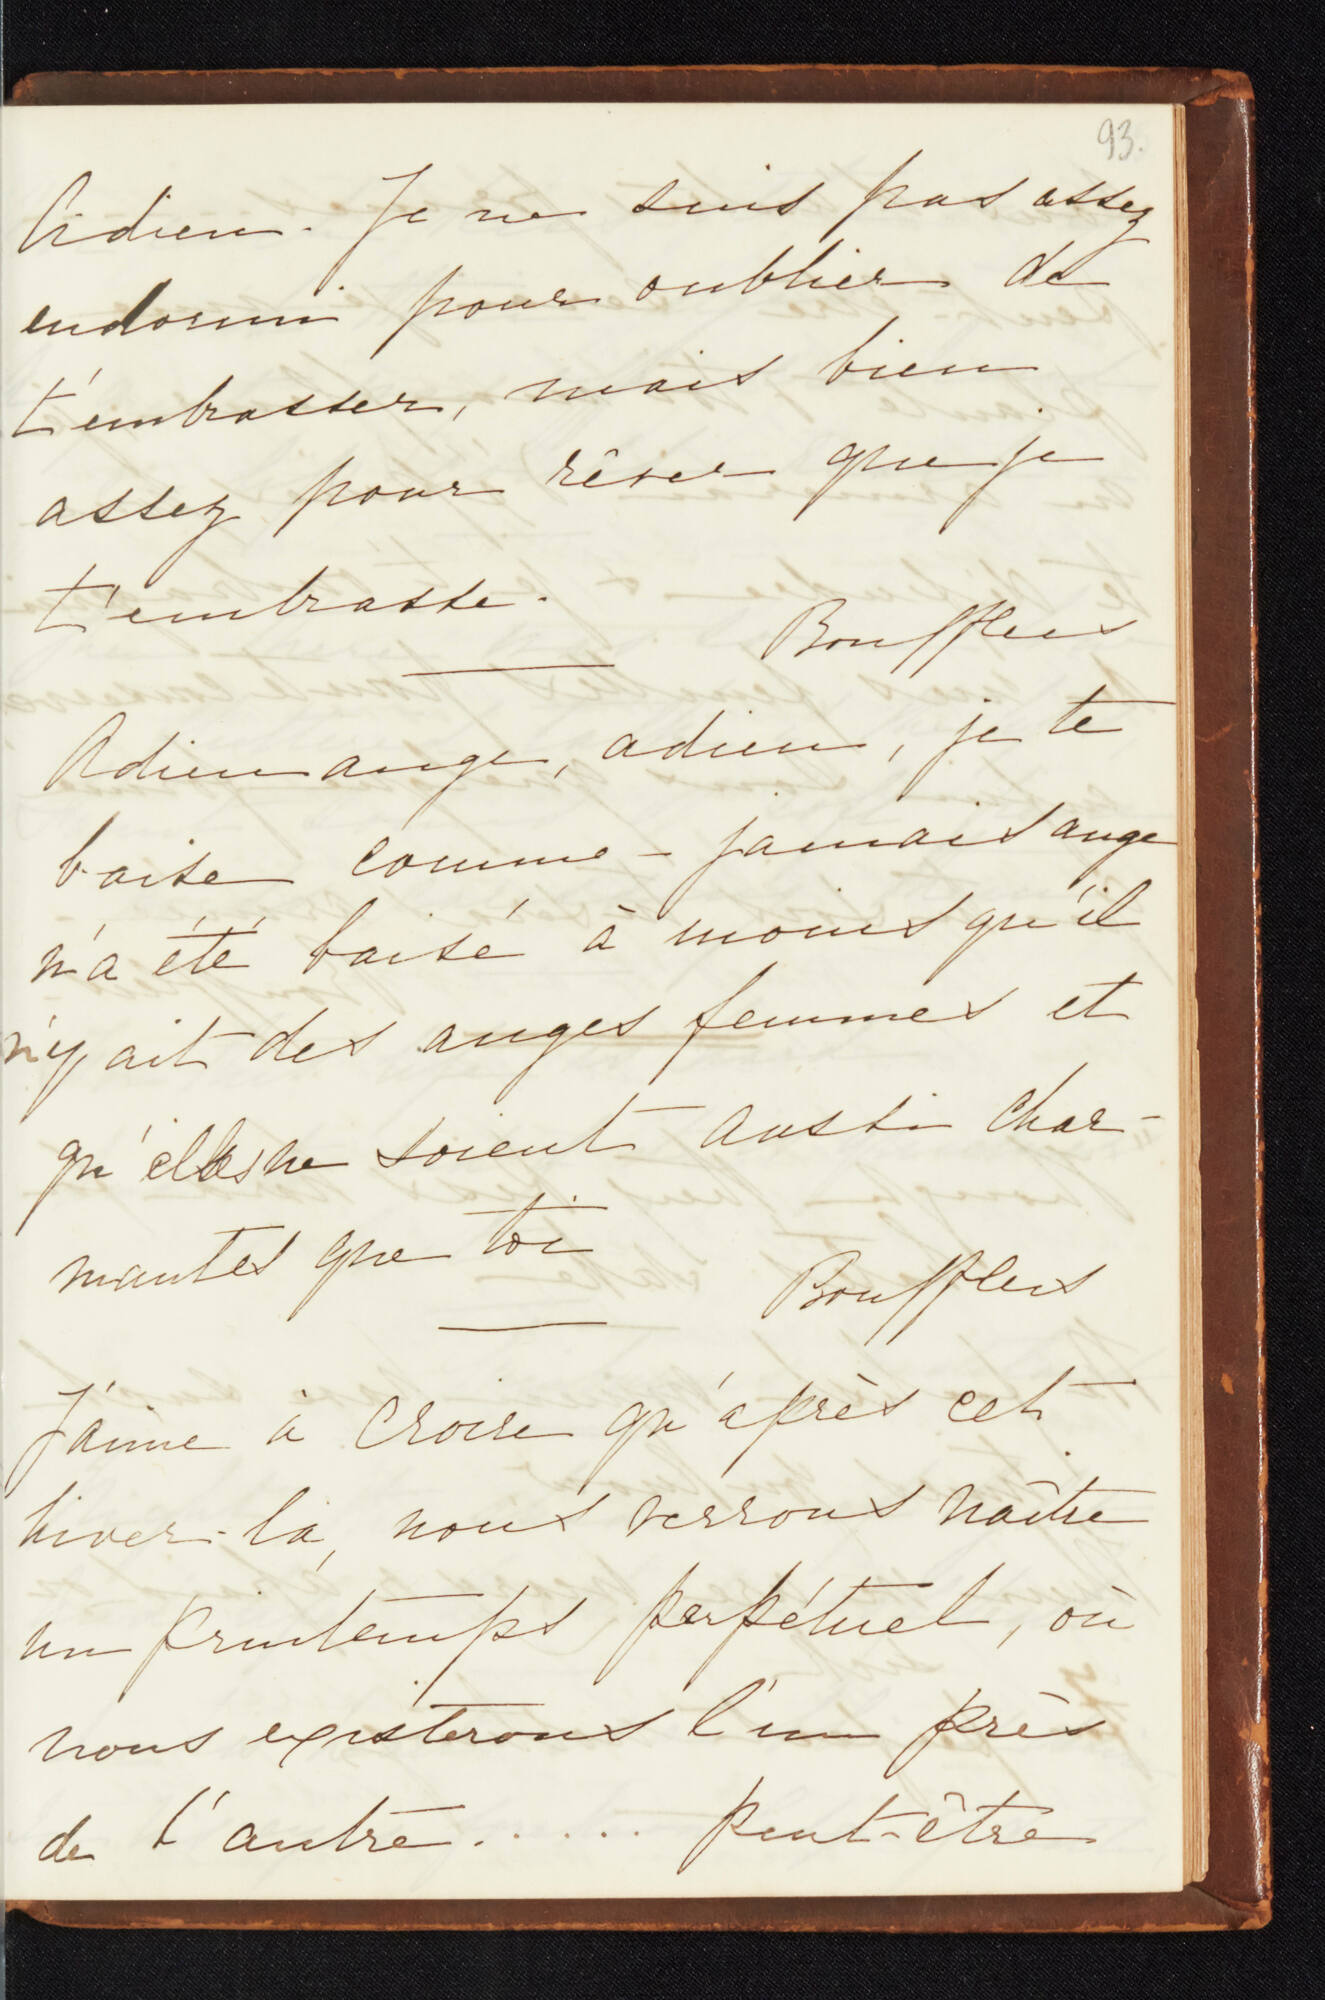 93.
Adieu. Je ne suis pas assez
endormi pour oublier de
t'embrasser, mais bien
assez pour rêver que je
t'embrasse.
Boufflers
Adieu ange, adieu, je te
baise comme - jamais ange
n'a été baisé à moins qu'il
n'y ait des anges femmes et
qu'elles ne soient aussi char-
mantes que toi
Boufflers
J'aime à croire qu'après cet
hiver-là, nous verrons naître
un printemps perpétuel, où
nous existerons l'un près
de l'autre..... peut-être